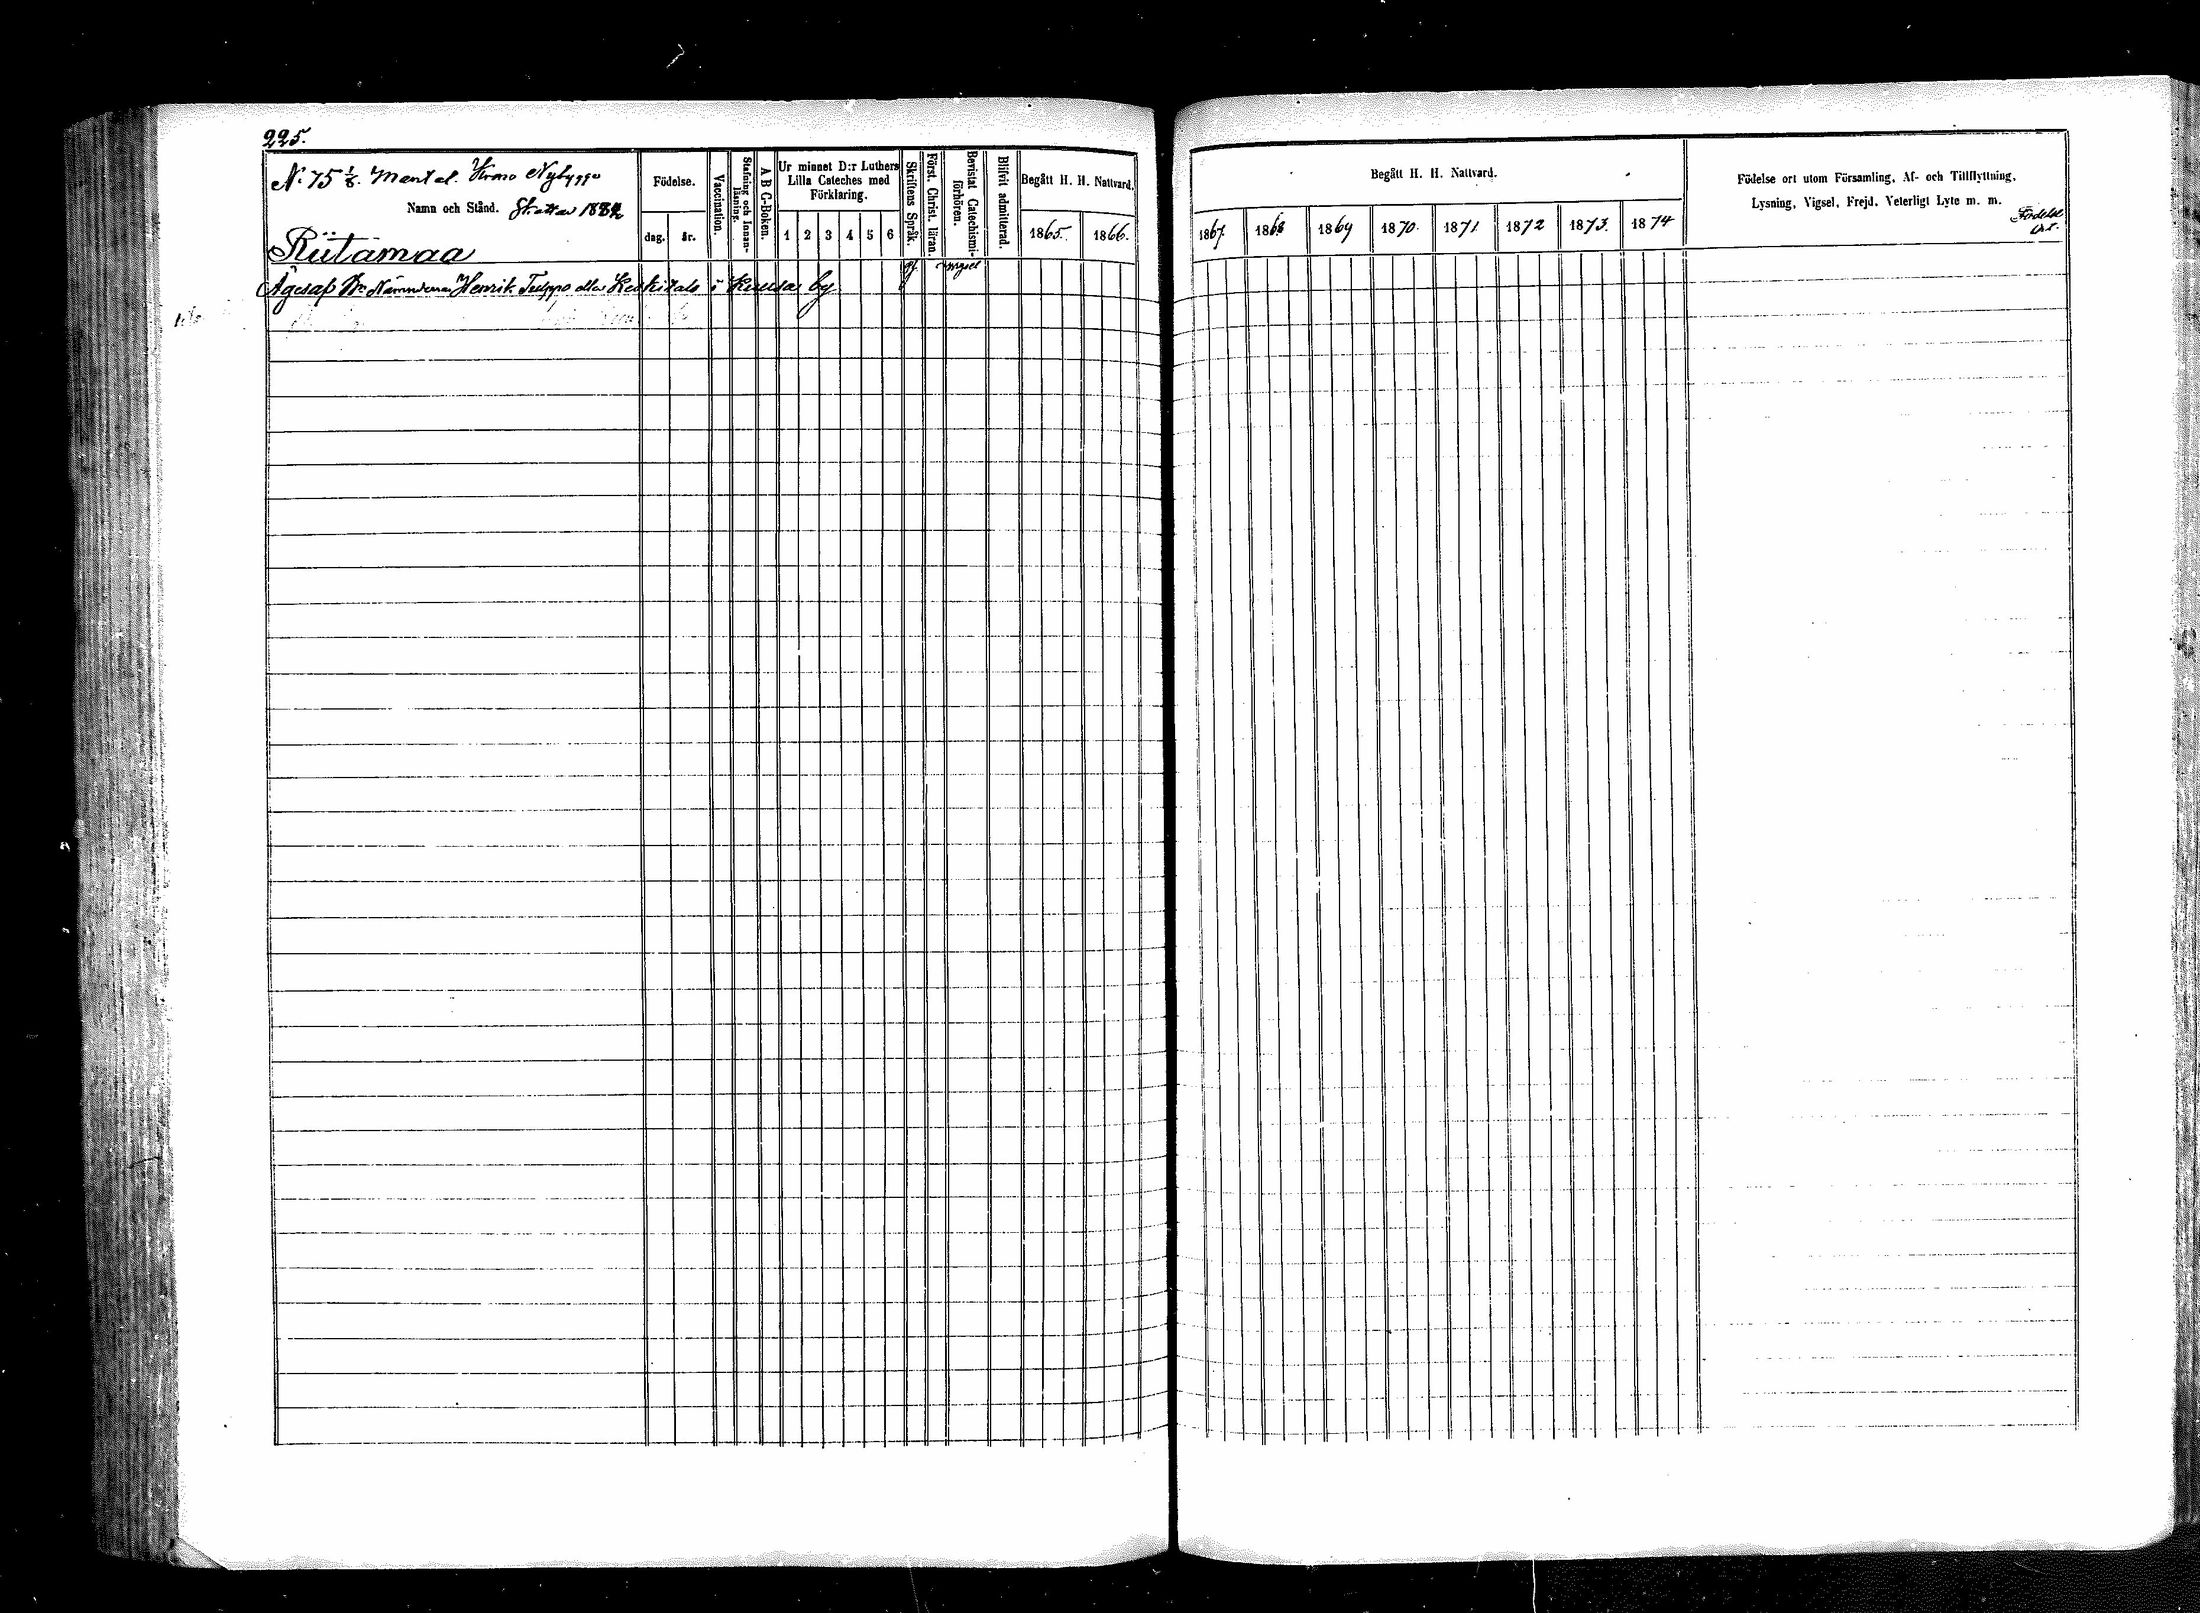 225.
N:o 75 1/8. Mantal. Krono Nybygge
Namn och Stånd. Skattar 1882
Riitamaa
Födelse.
dag. år.
Vaccination.
Stafning och Innan-läsning.
A B C-Boken.
Ur minnet D:r Luthers
Lilla Cateches med
Förklaring.
1 2 3 4 5 6
Skriftens Språk.
Först. Christ. läran.
Bevistat Catechismi-förhören.
Blifvit admitterad.
Begått H. H. Nattvard.
1865. 1866.
Begått H. H. Nattvard.
1867 1868 1869 1870. 1871 1872 1873. 1874
Födelse ort utom Församling, Af- och Tillflyttning,
Lysning, Vigsel, Frejd, Veterligt Lyte m. m.
Födelse
Ort.
Äges af Nämndeman Henrik Tulppo eller Keskitalo i Kuusa by